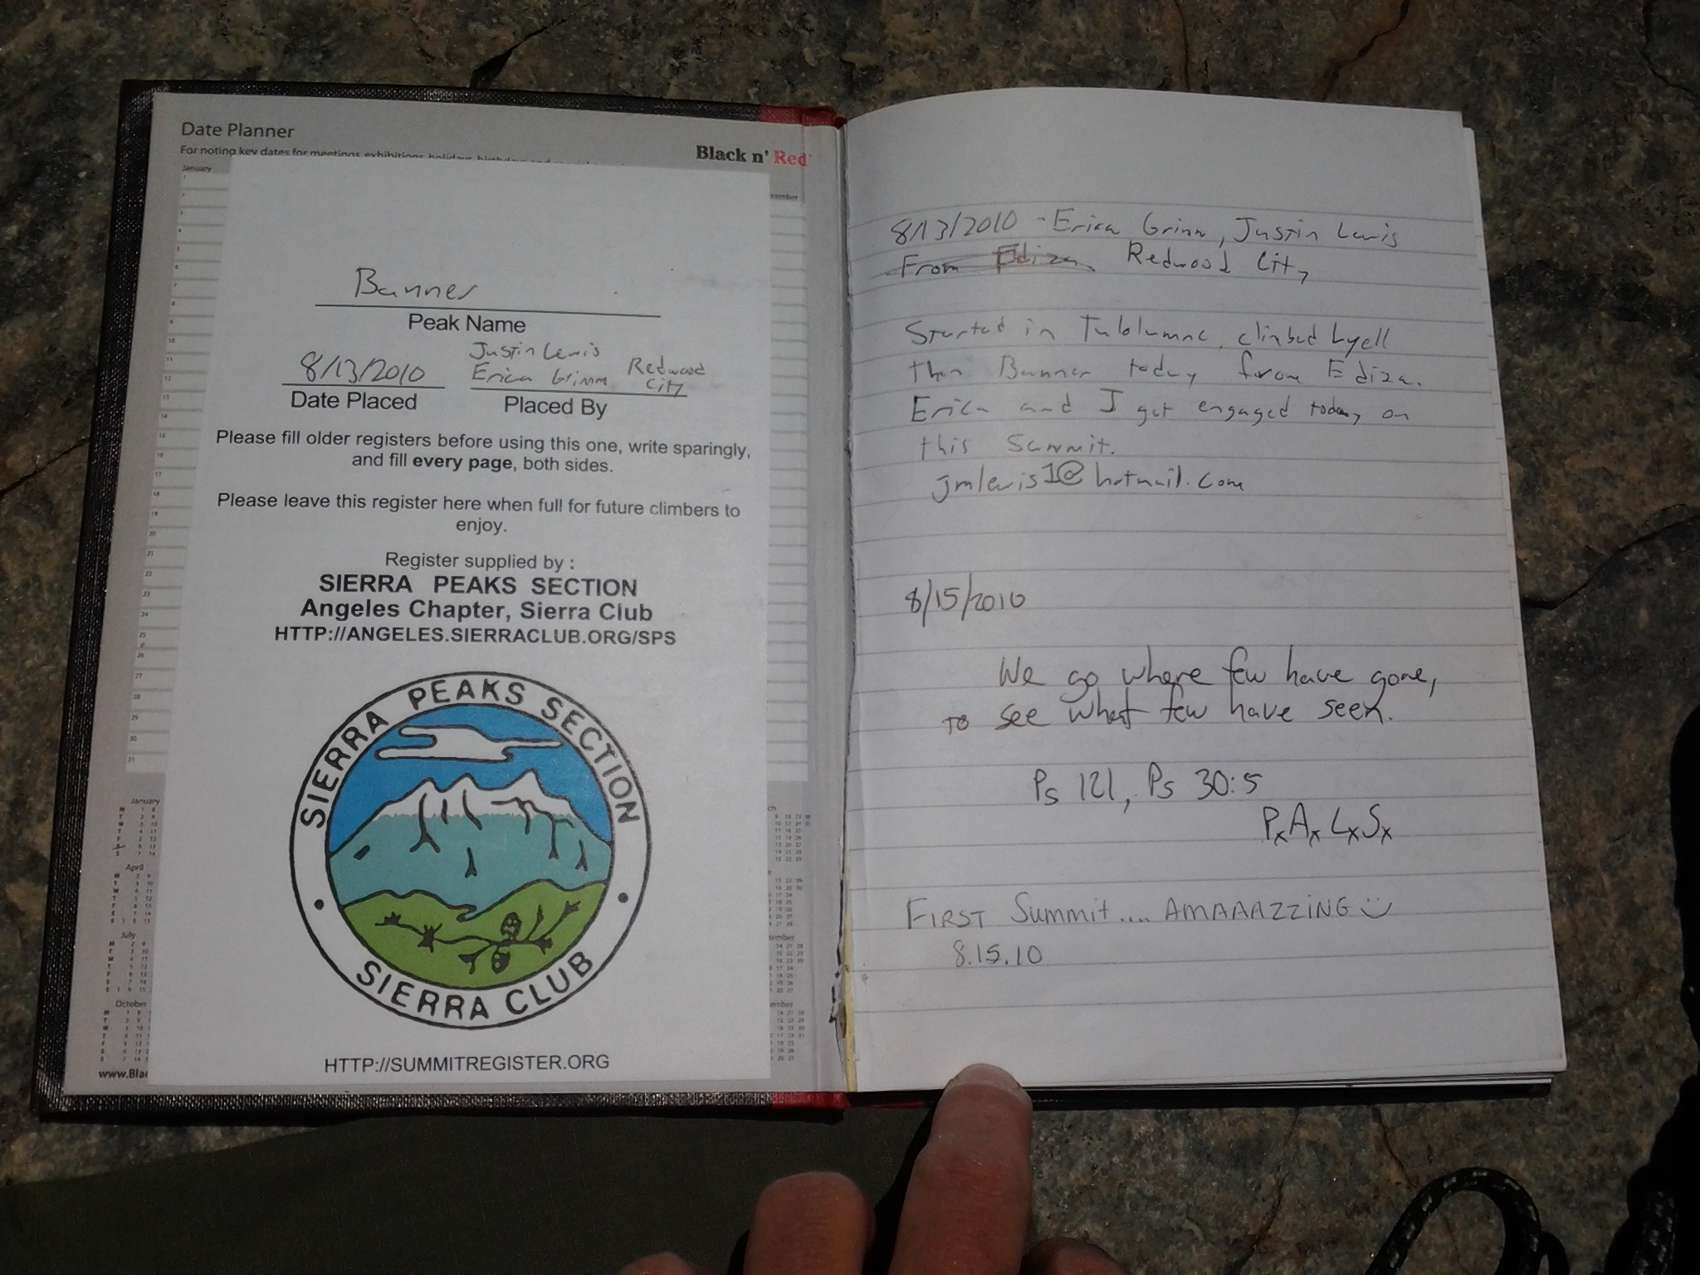 Date Planner
Black n' Red
January
Banner
Peak Name
8/13/2010
Justin Lewis
Erica Grimm Redwood City
Date Placed
Placed By
Please fill older registers before using this one, write sparingly,
and fill every page, both sides.
Please leave this register here when full for future climbers to
enjoy.
Register supplied by :
SIERRA PEAKS SECTION
Angeles Chapter, Sierra Club
HTTP://ANGELES.SIERRACLUB.ORG/SPS
SIERRA PEAKS SECTION
SIERRA CLUB
HTTP://SUMMITREGISTER.ORG
January
April
July
October
www.Bla
8/13/2010 - Erica Grimm, Justin Lewis
From Ediza Redwood City
Started in Tulolumne, climbed Lyell
then Banner today from Ediza.
Erica and I got engaged today on
this Summit.
jmlewis1@hotmail.com
8/15/2010
We go where few have gone,
to see what few have seen.
Ps 121, Ps 30:5
PxAxLxSx
FIRST Summit.... AMAAAZZING
8.15.10